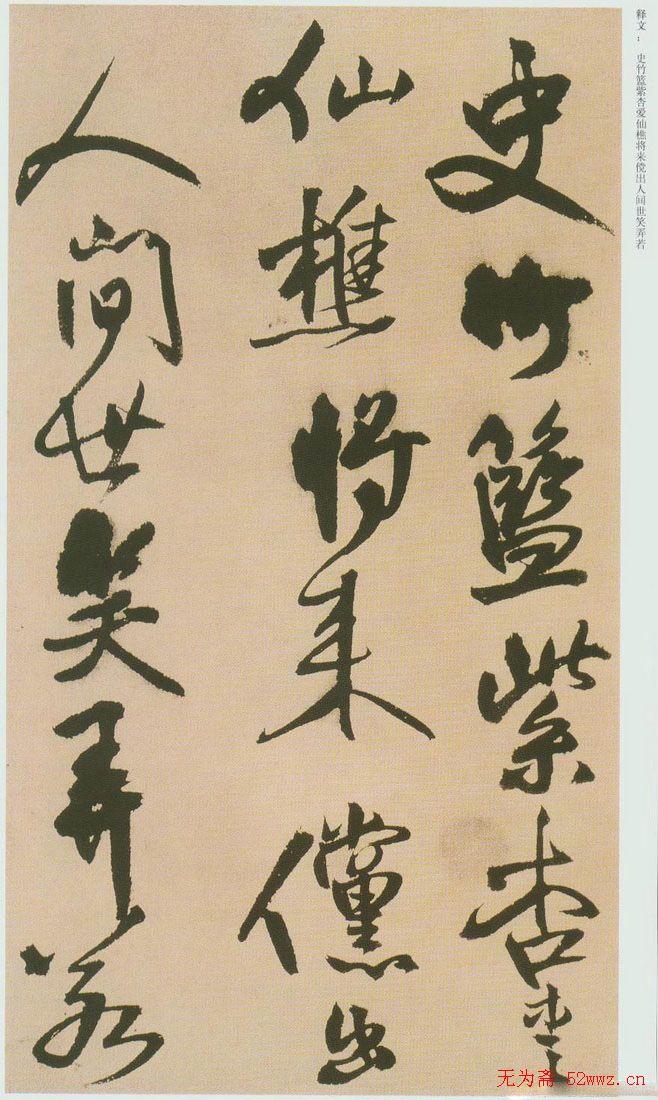 释文： 史竹篮紫杏爱仙樵将来傥出人间世笑弄若
史竹籃紫杏
仙樵将来儻出
人间世笑弄若
无为斋 52wwz.cn